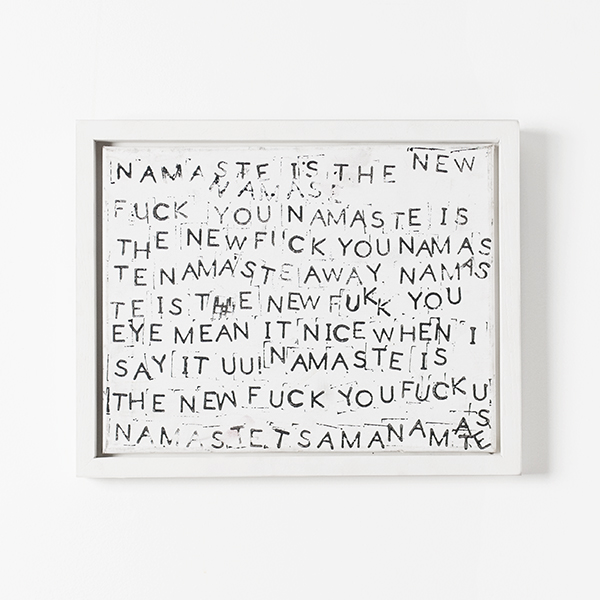 NAMASTE IS THE NEW
NAMASE
FUCK YOU NAMASTE IS
THE NEW FUCK YOU NAMAS
TE NAMA'STE AWAY NAMAS
TE IS THE NEW FUKK YOU
EYE MEAN IT NICE WHEN I
SAY IT UU! NAMASTE IS
THE NEW FUCK YOU FUCK U
NAMASTETSAMANAMASTE